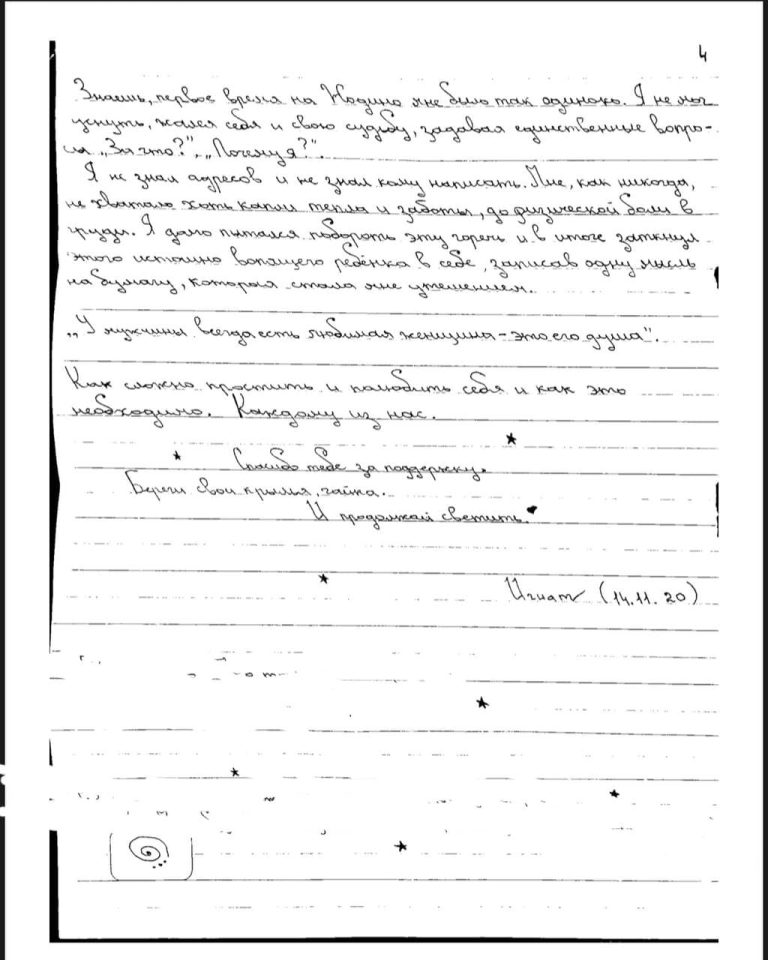 4
Знаешь, первое время на Жодино мне было так одиноко. Я не мог
уснуть, жалея себя и свою судьбу, задавая единственные вопро-
сы „За что?", „Почему я?".
Я не знал адресов и не знал кому написать. Мне, как никогда,
не хватало хоть капли тепла и заботы, до физической боли в
груди. Я долго пытался побороть эту горечь и в итоге заткнул
этого истошно вопящего ребёнка в себе, записав одну мысль
на бумагу, которая стала мне утешением.
„У мужчины всегда есть любимая женщина – это его душа".
Как сложно простить и полюбить себя и как это
необходимо. Каждому из нас.
Спасибо тебе за поддержку.
Береги свои крылья, чайка.
И продолжай светить.
Игнат (14.11.20)